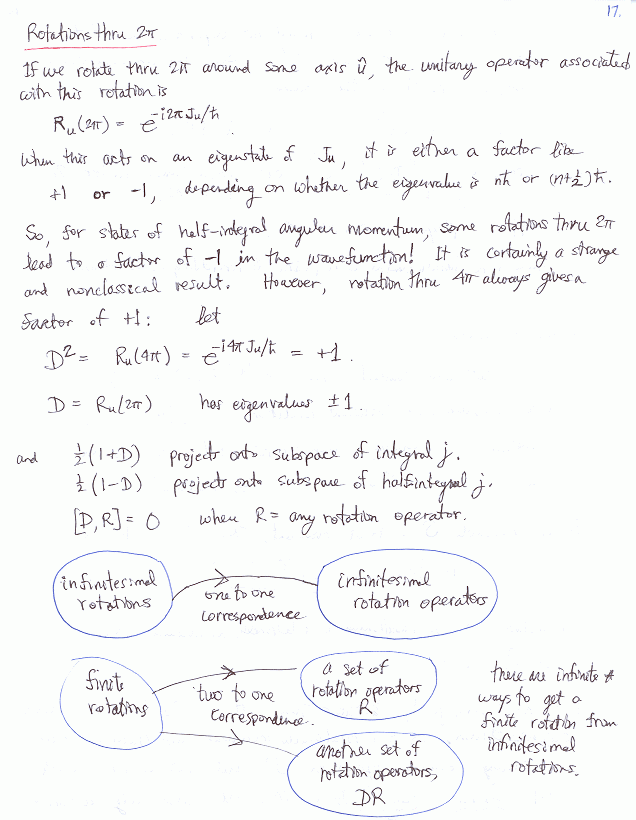 17.
Rotations thru 2π
If we rotate thru 2π around some axis û, the unitary operator associated
with this rotation is
R_u(2π) = e^{-i2π J_u/ħ}
When this acts on an eigenstate of J_u, it is either a factor like
+1 or -1, depending on whether the eigenvalue is nħ or (n+½)ħ.
So, for states of half-integral angular momentum, some rotations thru 2π
lead to a factor of -1 in the wavefunction! It is certainly a strange
and nonclassical result. However, rotation thru 4π always gives a
factor of +1: let
D² = R_u(4π) = e^{-i4π J_u/ħ} = +1.
D = R_u(2π) has eigenvalues ±1.
and ½(1+D) projects onto subspace of integral j.
½(1-D) projects onto subspace of halfintegral j.
[D,R] = 0 when R = any rotation operator.
infinitesimal
rotations
one to one
correspondence
infinitesimal
rotation operators
finite
rotations
two to one
correspondence.
a set of
rotation operators
R
another set of
rotation operators,
DR
there are infinite #
ways to get a
finite rotation from
infinitesimal
rotations.